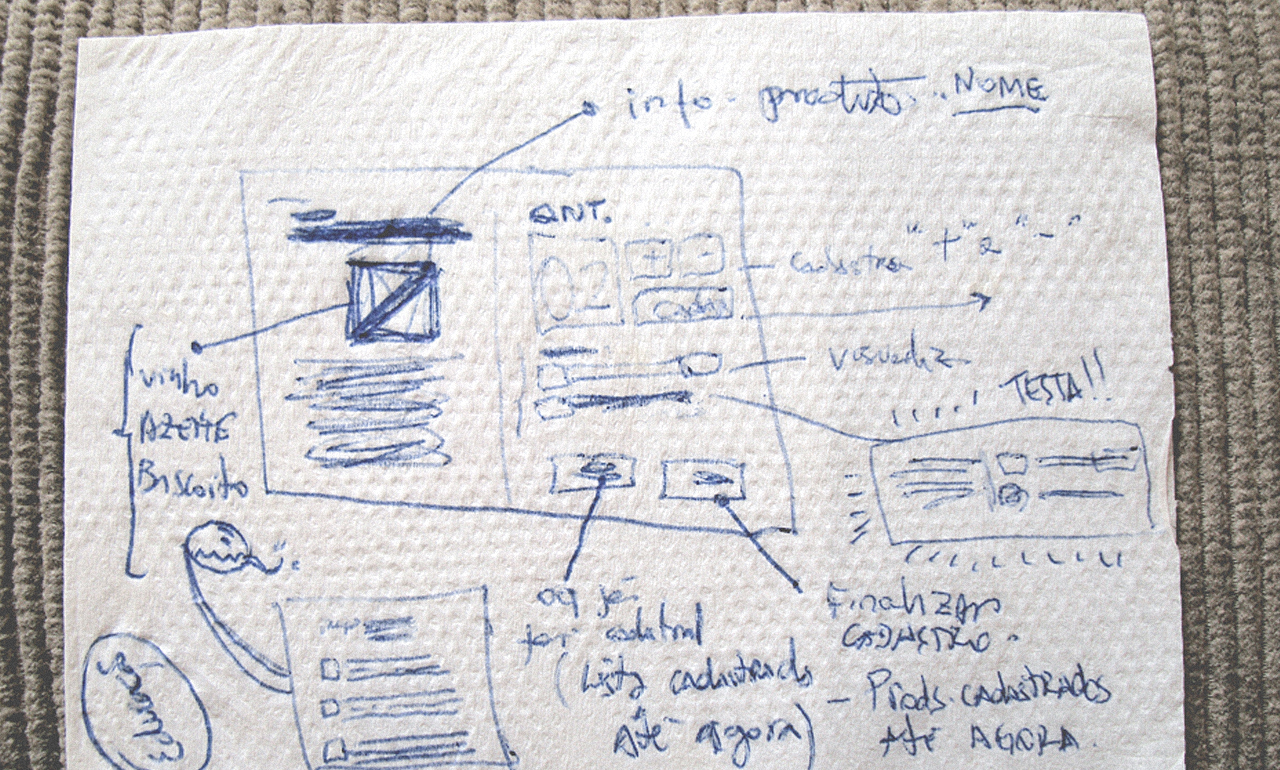 info. produto. NOME
QNT.
02 + -
cadastra "+" e "-"
visualiz
TESTA!!
vinho
AZEITE
Biscoito
oq já
foi
(Lista cadastrado
Até agora)
Finalizar
CADASTRO.
- Prods. CADASTRADOS
Até AGORA.